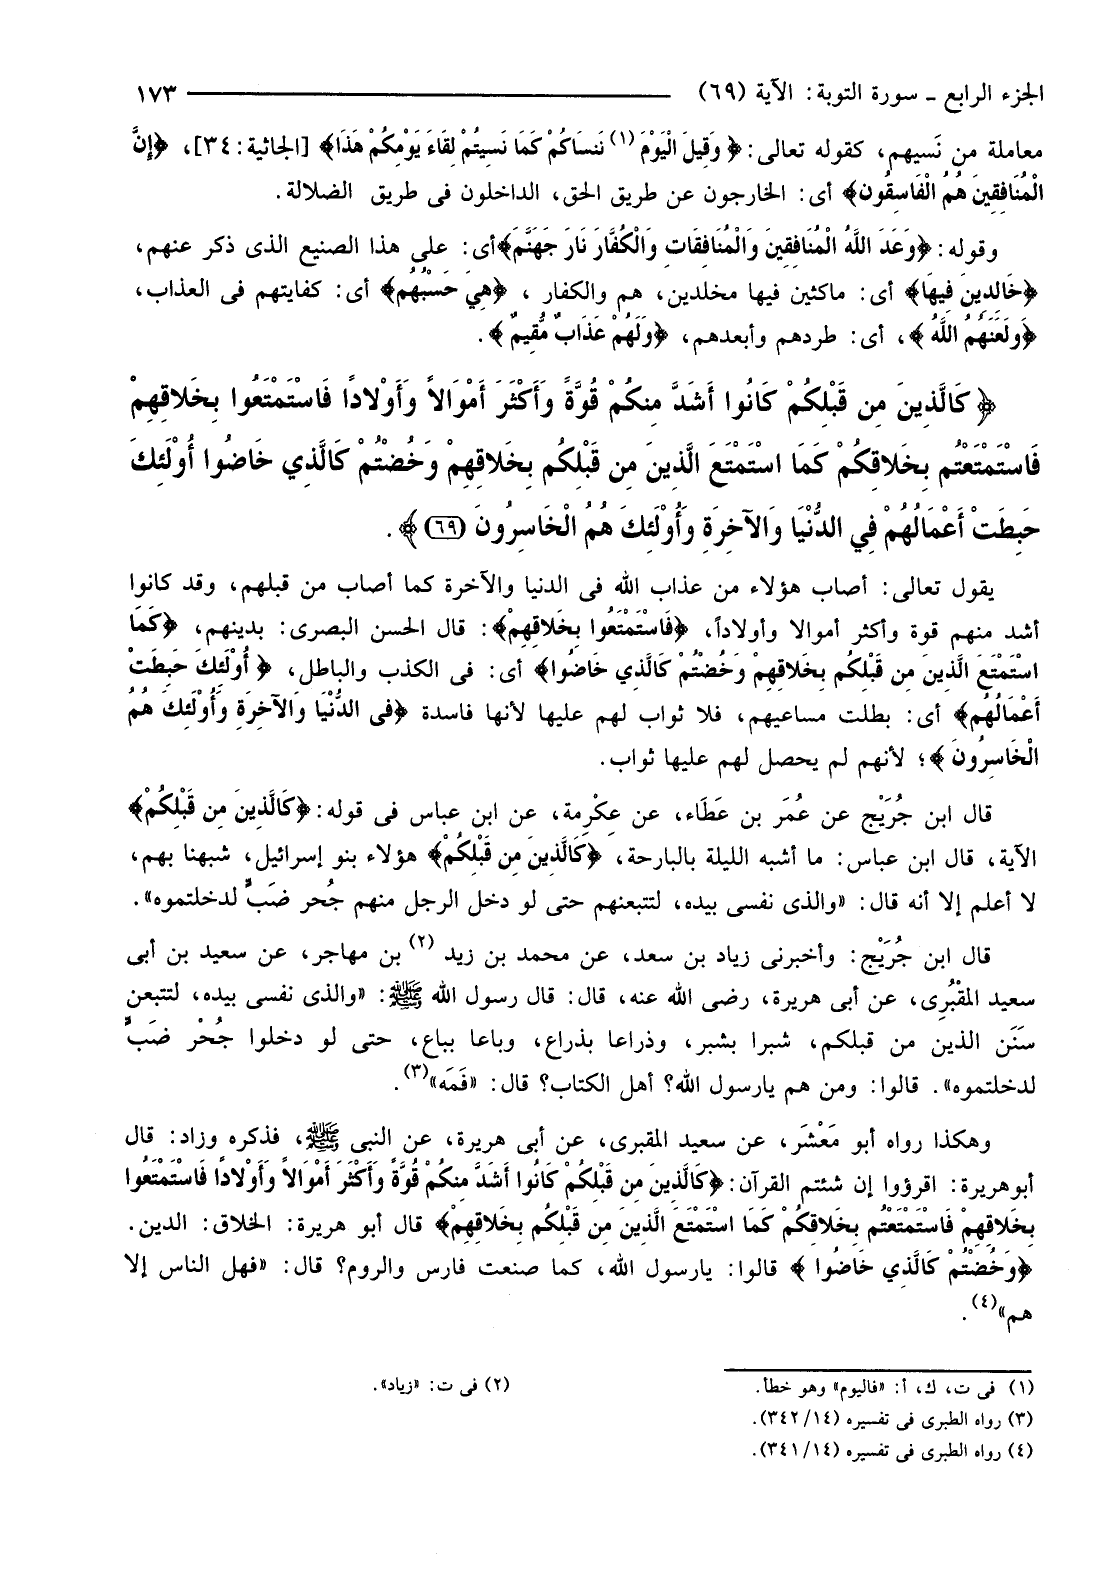 الجزء الرابع ـ سورة التوبة: الآية (٦٩) ١٧٣
معاملة من نَسيهم، كقوله تعالى: ﴿ وَقِيلَ الْيَوْمَ (١) نَنسَاكُمْ كَمَا نَسِيتُمْ لِقَاءَ يَوْمِكُمْ هَذَا﴾ [الجاثية: ٣٤]، ﴿إِنَّ
الْمُنَافِقِينَ هُمُ الْفَاسِقُون﴾ أى: الخارجون عن طريق الحق، الداخلون فى طريق الضلالة.
وقوله: ﴿وَعَدَ اللَّهُ الْمُنَافِقِينَ وَالْمُنَافِقَاتِ وَالْكُفَّارَ نَارَ جَهَنَّمَ﴾أى: على هذا الصنيع الذى ذكر عنهم،
﴿خَالِدِينَ فِيهَا﴾ أى: ماكثين فيها مخلدين، هم والكفار ، ﴿هِيَ حَسْبُهُم﴾ أى: كفايتهم فى العذاب،
﴿وَلَعَنَهُمُ اللَّهُ ﴾، أى: طردهم وأبعدهم، ﴿وَلَهُمْ عَذَابٌ مُّقِيمٌ ﴾.
﴿ كَالَّذِينَ مِن قَبْلِكُمْ كَانُوا أَشَدَّ مِنكُمْ قُوَّةً وَأَكْثَرَ أَمْوَالاً وَأَوْلادًا فَاسْتَمْتَعُوا بِخَلاقِهِمْ
فَاسْتَمْتَعْتُم بِخَلاقِكُمْ كَمَا اسْتَمْتَعَ الَّذِينَ مِن قَبْلِكُم بِخَلاقِهِمْ وَخُضْتُمْ كَالَّذِي خَاضُوا أُوْلَئِكَ
حَبِطَتْ أَعْمَالُهُمْ فِي الدُّنْيَا وَالآخِرَةِ وَأُوْلَئِكَ هُمُ الْخَاسِرُونَ (٦٩) ﴾.
يقول تعالى: أصاب هؤلاء من عذاب الله فى الدنيا والآخرة كما أصاب من قبلهم، وقد كانوا
أشد منهم قوة وأكثر أموالا وأولاداً، ﴿فَاسْتَمْتَعُوا بِخَلاقِهِمْ﴾: قال الحسن البصرى: بدينهم، ﴿كَمَا
اسْتَمْتَعَ الَّذِينَ مِن قَبْلِكُم بِخَلاقِهِمْ وَخُضْتُمْ كَالَّذِي خَاضُوا﴾ أى: فى الكذب والباطل، ﴿ أُوْلَئِكَ حَبِطَتْ
أَعْمَالُهُم﴾ أى: بطلت مساعيهم، فلا ثواب لهم عليها لأنها فاسدة ﴿فى الدُّنْيَا وَالآخِرَةِ وَأُوْلَئِكَ هُمُ
الْخَاسِرُونَ ﴾؛ لأنهم لم يحصل لهم عليها ثواب.
قال ابن جُرَيْج عن عُمَر بن عَطَاء، عن عِكْرِمة، عن ابن عباس فى قوله: ﴿كَالَّذِينَ مِن قَبْلِكُمْ﴾
الآية، قال ابن عباس: ما أشبه الليلة بالبارحة، ﴿كَالَّذِينَ مِن قَبْلِكُمْ﴾ هؤلاء بنو إسرائيل، شبهنا بهم،
لا أعلم إلا أنه قال: «والذى نفسى بيده، لتتبعنهم حتى لو دخل الرجل منهم جُحر ضَبٍّ لدخلتموه».
قال ابن جُرَيْج: وأخبرنى زياد بن سعد، عن محمد بن زيد (٢) بن مهاجر، عن سعيد بن أبى
سعيد المقْبُرِى، عن أبى هريرة، رضى الله عنه، قال: قال رسول الله ﷺ: «والذى نفسى بيده، لتتبعن
سَنَن الذين من قبلكم، شبرا بشبر، وذراعا بذراع، وباعا بباع، حتى لو دخلوا جُحْر ضَبٍّ
لدخلتموه». قالوا: ومن هم يارسول الله؟ أهل الكتاب؟ قال: «فَمَه»(٣).
وهكذا رواه أبو مَعْشَر، عن سعيد المقبرى، عن أبى هريرة، عن النبى ﷺ، فذكره وزاد: قال
أبوهريرة: اقرؤوا إن شئتم القرآن: ﴿كَالَّذِينَ مِن قَبْلِكُمْ كَانُوا أَشَدَّ مِنكُمْ قُوَّةً وَأَكْثَرَ أَمْوَالاً وَأَوْلادًا فَاسْتَمْتَعُوا
بِخَلاقِهِمْ فَاسْتَمْتَعْتُم بِخَلاقِكُمْ كَمَا اسْتَمْتَعَ الَّذِينَ مِن قَبْلِكُم بِخَلاقِهِمْ﴾ قال أبو هريرة: الخلاق: الدين.
﴿وَخُضْتُمْ كَالَّذِي خَاضُوا ﴾ قالوا: يارسول الله، كما صنعت فارس والروم؟ قال: «فهل الناس إلا
هم»(٤).
(١) فى ت، ك، أ: «فاليوم» وهو خطأ. (٢) فى ت: «زياد».
(٣) رواه الطبرى فى تفسيره (١٤/ ٣٤٢).
(٤) رواه الطبرى فى تفسيره (١٤/ ٣٤١).